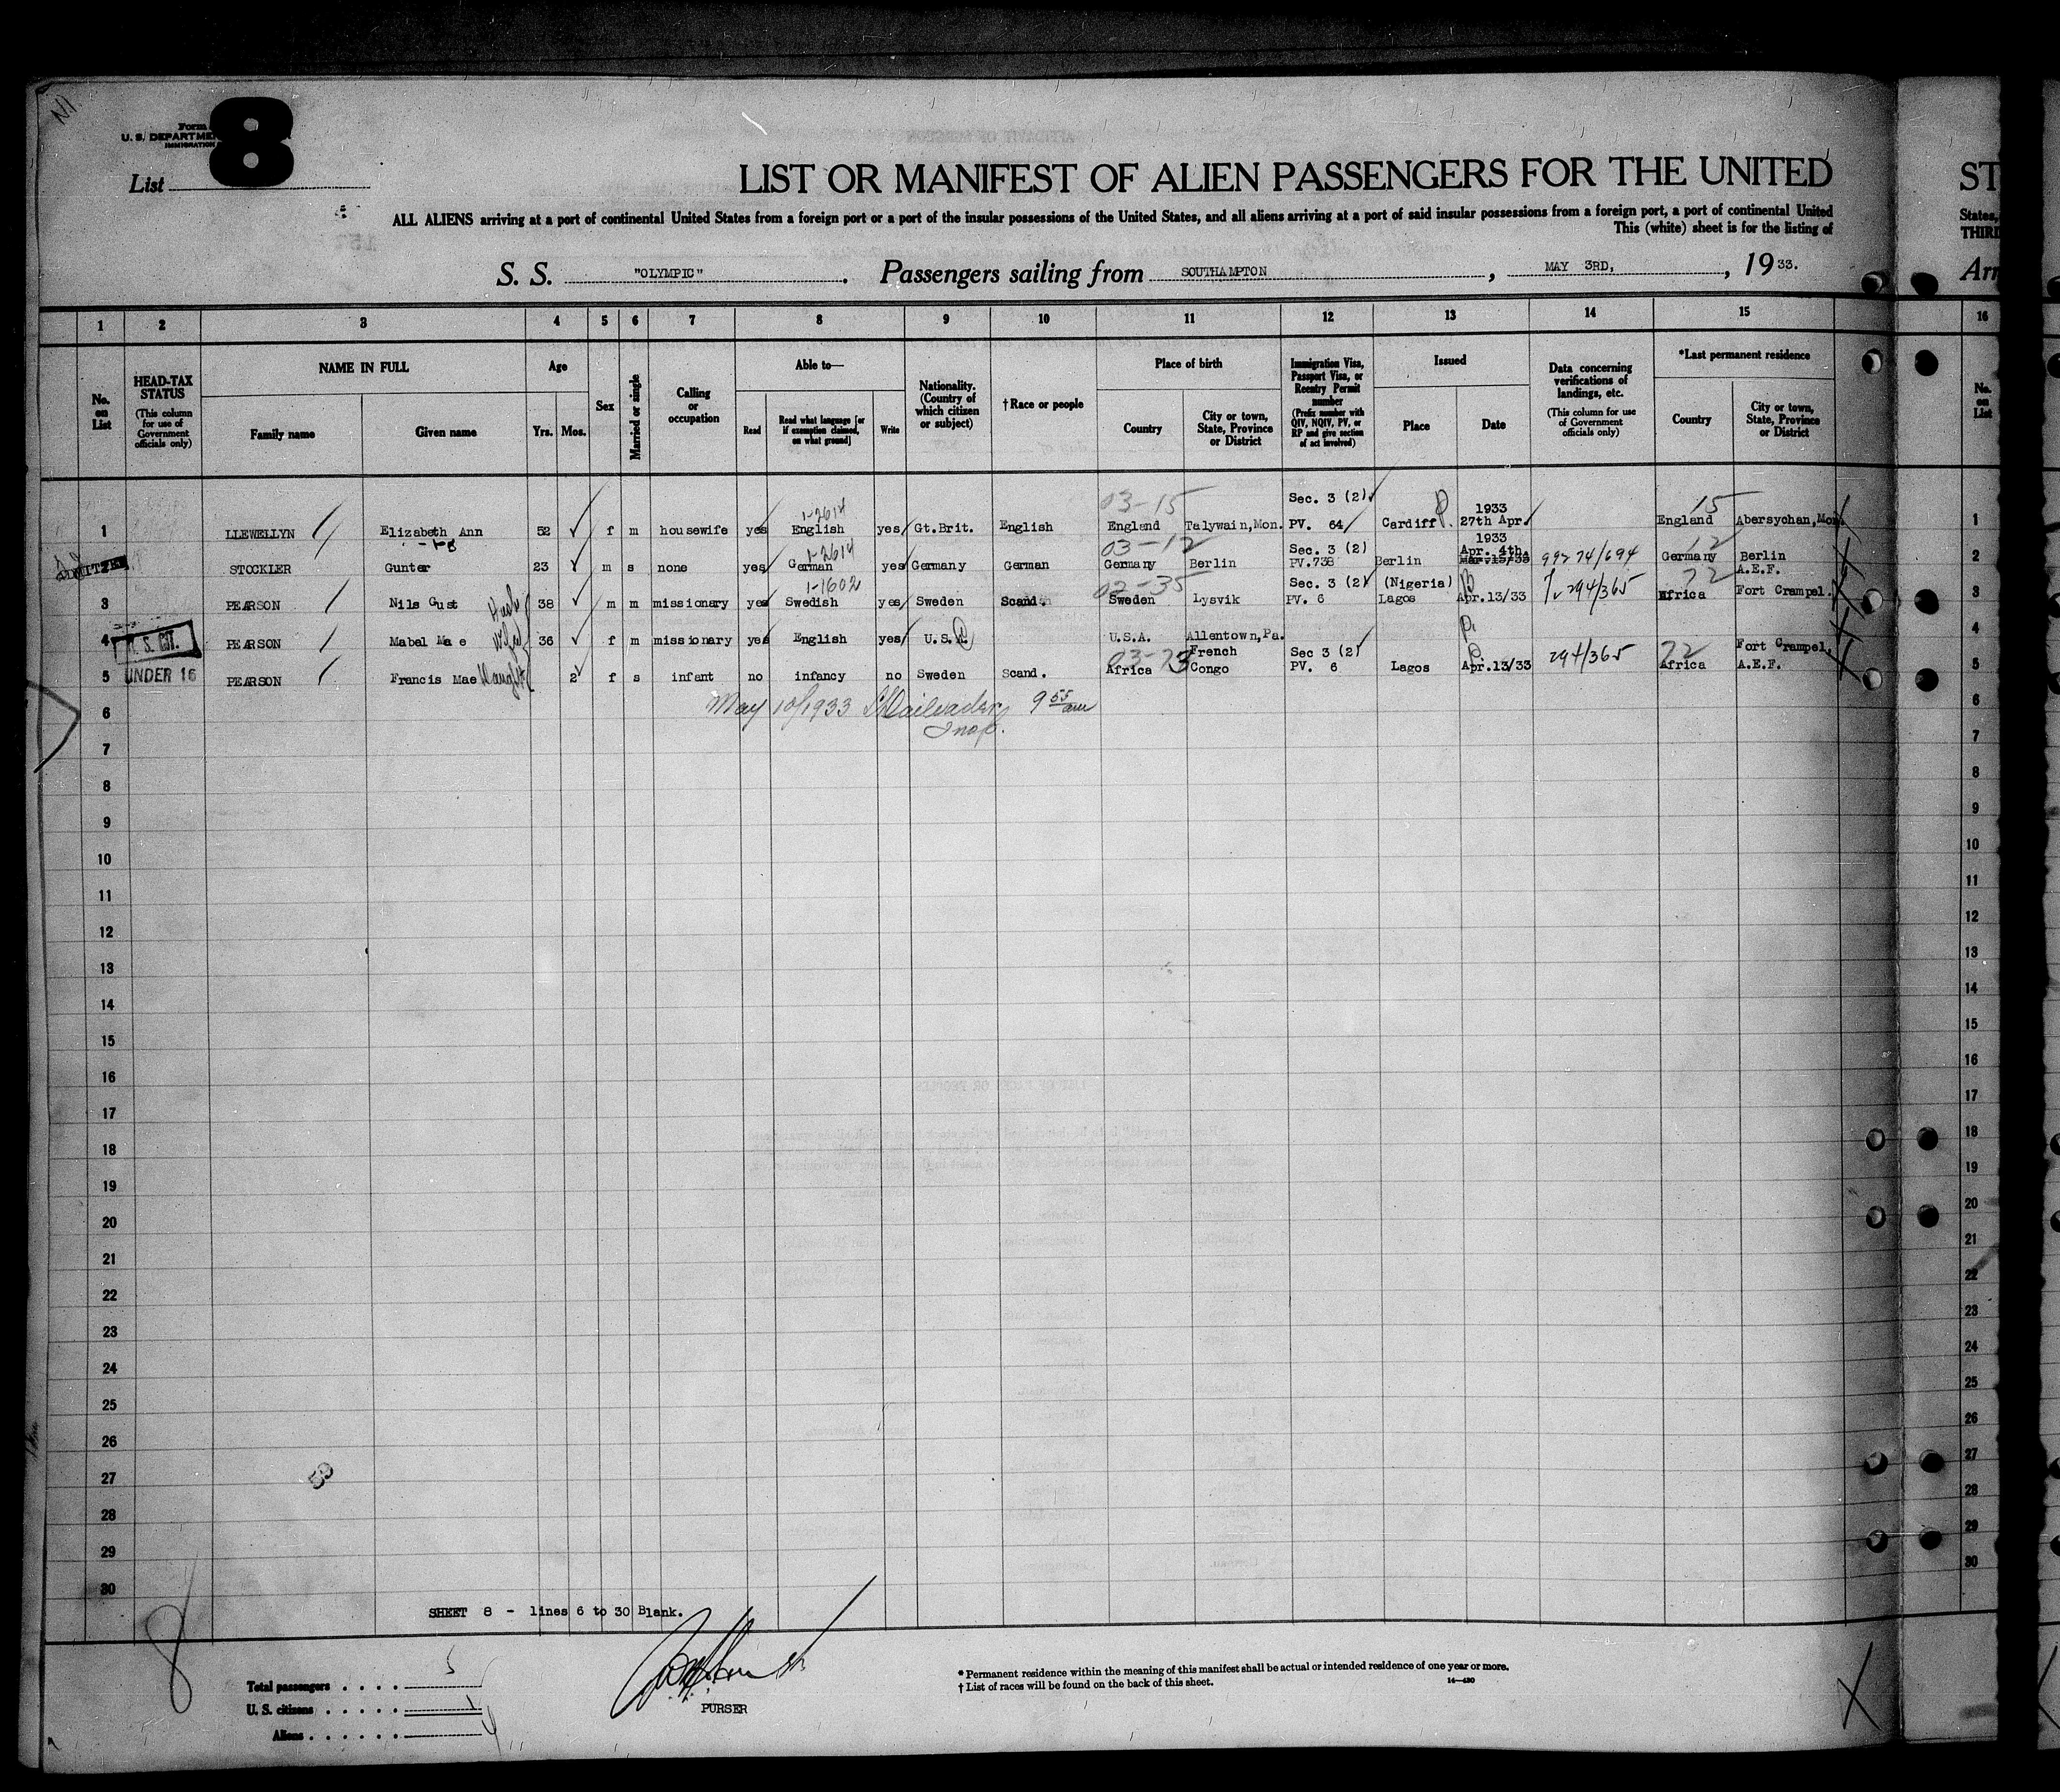 Form
U. S. DEPARTME
IMMIGRATION
8
List
LIST OR MANIFEST OF ALIEN PASSENGERS FOR THE UNITED
ALL ALIENS arriving at a port of continental United States from a foreign port or a port of the insular possessions of the United States, and all aliens arriving at a port of said insular possessions from a foreign port, a port of continental United
This (white) sheet is for the listing of
S. S. "OLYMPIC". Passengers sailing from SOUTHAMPTON, MAY 3RD, , 1933.
ST
States,
THIRD
Arr
1 2 3 4 5 6 7 8 9 10 11 12 13 14 15 16
No. on List
HEAD-TAX STATUS (This column for use of Government officials only)
NAME IN FULL
Family name Given name
Age
Yrs. Mos.
Sex
Married or single
Calling or occupation
Able to—
Read Read what language [or if exemption claimed, on what ground] Write
Nationality. (Country of which citizen or subject)
†Race or people
Place of birth
Country City or town, State, Province or District
Immigration Visa, Passport Visa, or Reentry Permit number (Prefix number with QIV, NQIV, PV, or RP and give section of act involved)
Issued
Place Date
Data concerning verifications of landings, etc. (This column for use of Government officials only)
*Last permanent residence
Country City or town, State, Province or District
No. on List
03-15 Sec. 3 (2) 1933 15
1-2614
1 LLEWELLYN Elizabeth Ann 52 f m housewife yes English yes Gt.Brit. English England Talywain,Mon. PV. 64 Cardiff. 27th Apr. England Abersychan,Mon. 1
1-2614 03-12 Sec. 3 (2) 1933 Apr. 4th. 12
2 STOCKLER Gunter 23 m s none yes German yes Germany German Germany Berlin PV.738 Berlin Mar.15/33 99274/694 Germany Berlin 2
1-1602 02-35 Sec. 3 (2) (Nigeria) 72 A.E.F.
3 PEARSON Nils Gust Husb 38 m m missionary yes Swedish yes Sweden Scand. Sweden Lysvik PV. 6 Lagos Apr.13/33 294/365 Africa Fort Crampel. 3
U. S. CIT.
4 PEARSON Mabel Mae Wife 36 f m missionary yes English yes U.S.A. U.S.A. Allentown,Pa. 4
UNDER 16
03-73 French Sec 3 (2) 294/365 72 Fort Crampel,
5 PEARSON Francis Mae Daught 2 f s infant no infancy no Sweden Scand. Africa Congo PV. 6 Lagos Apr.13/33 Africa A.E.F. 5
May 10/1933 9 55 am
Insp.
6 6
7 7
8 8
9 9
10 10
11 11
12 12
13 13
14 14
15 15
16 16
17 17
18 18
19 19
20 20
21 21
22 22
23 23
24 24
25 25
26 26
27 27
28 28
29 29
30 30
SHEET 8 - lines 6 to 30 Blank.
8
Total passengers . . . . 5
U. S. citizens . . . . . 1
Aliens . . . . . . 4
PURSER
* Permanent residence within the meaning of this manifest shall be actual or intended residence of one year or more.
† List of races will be found on the back of this sheet.
14—430